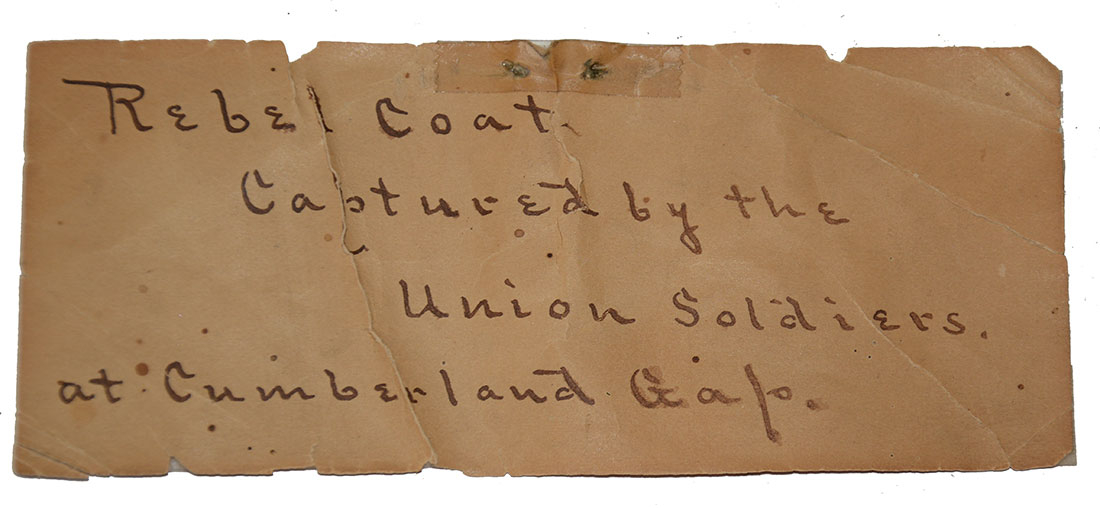 Rebel Coat.
Captured by the
Union Soldiers.
at Cumberland Gap.